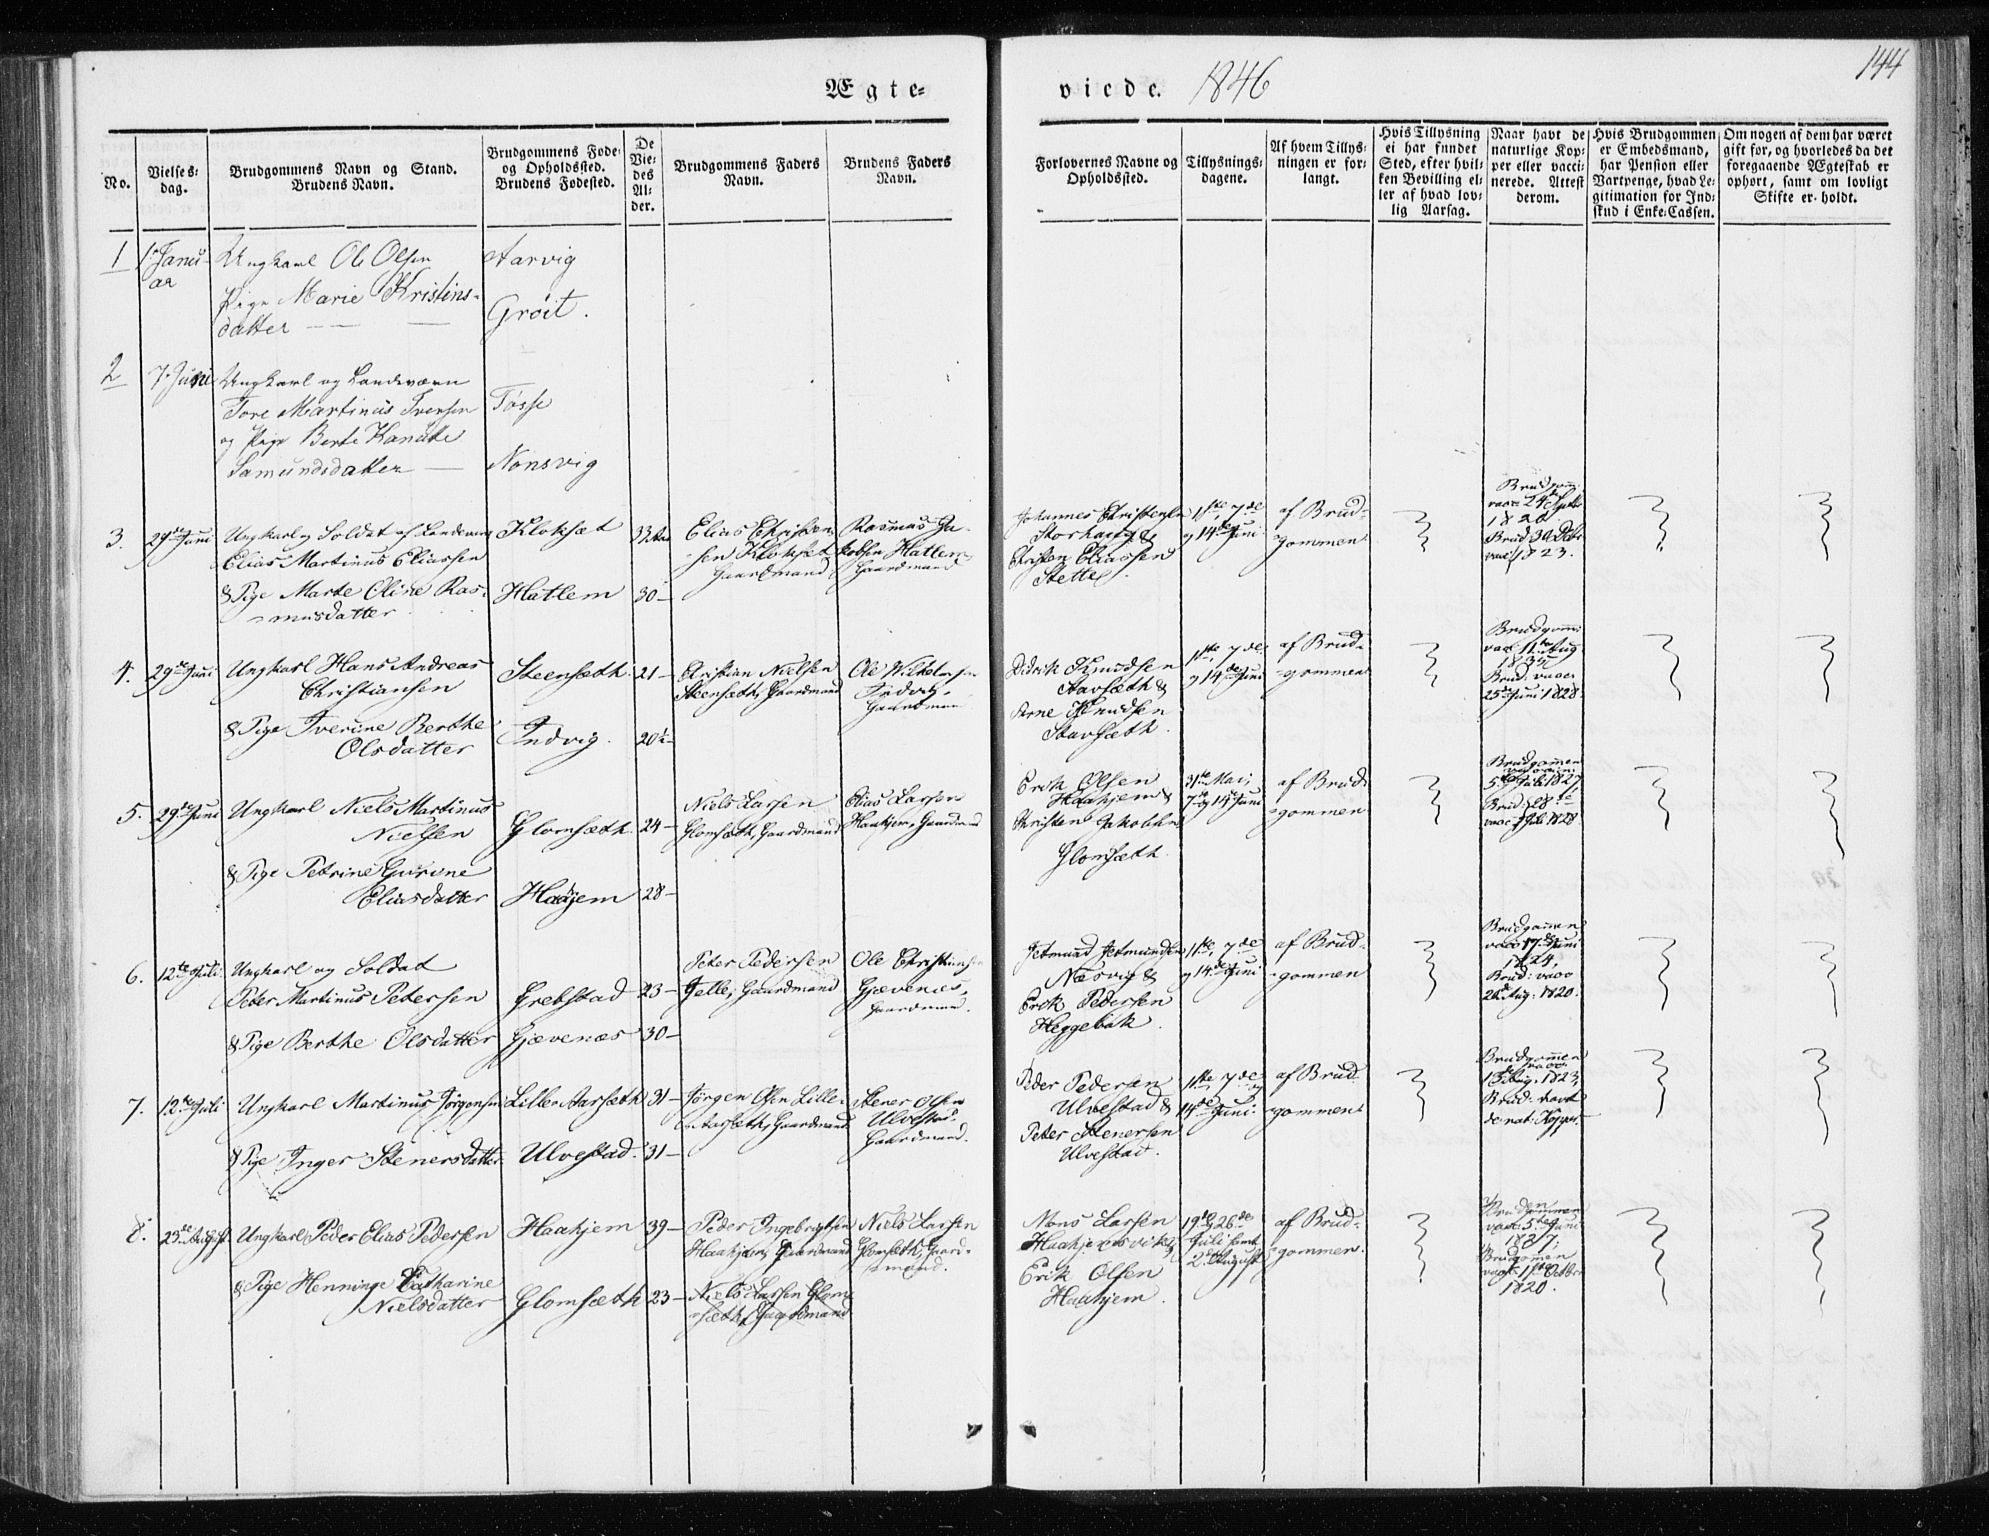 144
Ægte-
viede. 1846
No.
Vielses-
dag.
Brudgommens Navn og Stand.
Brudens Navn.
Brudgommens Føde-
og Opholdssted.
Brudens Fødested.
De
Vie-
des
Al-
der.
Brudgommens Faders
Navn.
Brudens Faders
Navn.
Forlovernes Navne og
Opholdssted.
Tillysnings-
dagene.
Af hvem Tillys-
ningen er for-
langt.
Hvis Tillysning
ei har fundet
Sted, efter hvil-
ken Bevilling el-
ler af hvad lov-
lig Aarsag.
Naar havt de
naturlige Kop-
per eller vacci-
nerede. Attest
derom.
Hvis Brudgommen
er Embedsmand,
har Pension eller
Vartpenge, hvad Le-
gitimation for Ind-
skud i Enke-Cassen.
Om nogen af dem har været
gift før, og hvorledes da det
foregaaende Ægteskab er
ophørt, samt om lovligt
Skifte er holdt.
1
1. Janu-
ar
Ungkarl Ole Olsen
Pige Marie Kristins-
datter
Aarvig
Grøit.
2
7. Juni
Ungkarl og Landeværn
Tore Martinus Iversen
og Pige Berte Kanutte
Samundsdatter
Tøsse
Nonsvig
3.
29de Juni
Ungkarl og Soldat af Landeværn
Elias Martinus Eliassen
& Pige Marte Oline Ras-
musdatter
Kloksæt
Hatlem
30
Elias Christen-
sen Kloksæt
Gaardmand
Rasmus Ja-
kobsen Hatlem
Gaardmand
Johannes Christensen
Storhaug &
Christen Eliassen
Stette
1ste, 7de
og 14de Juni
af Brud-
gommen
Brudgom.
1820
1823.
4.
29de Juni
Ungkarl Hans Andreas
Christiansen
& Pige Iverine Berthe
Olsdatter
Steensæth
Indvig.
21
20½
Christian Nielsen
Steensæth, Gaardmand
Ole Wilhelmsen
Indvig,
Gaardman
Didrik Knudsen
Stavsæth &
Arne Knudsen
Stavsæth.
1ste, 7de
og 14de Juni
af Brud-
gommen
Brudgom:
11te Aug.
Brud: vacc:
25de Juni 1828.
5.
29de Juni
Ungkarl Niels Martinus
Nielsen
& Pige Petrine Gurine
Eliasdatter
Glomsæth
Haakjem
24
28
Niels Larsen
Glomsæth, Gaardmand
Elias Larsen
Haakjem, Gaardmand
Erik Olsen
Haakjem &
Christen Jakobsen
Glomsæth.
31te Mai,
7de og 14de Juni
af Brud-
gommen
Brudgommen
5te Juli 1827,
Brud: 28de
Juli 1828.
6.
12te Juli
Ungkarl og Soldat
Peter Martinus Petersen
& Pige Berthe Olsdatter
Grebstad
Gjævenæs
23
30
Peter Pedersen
Gaardmand
Ole Christiansen
Gjævenæs,
Gaardmand.
Jetmund Jetmundsen
Næsvig &
Erik Pedersen
Heggebak.
1ste, 7de
og 14de Juni
af Brud-
gommen
Brudgommen
vacc: 17de Juni
1824,
Brud: vacc
Aug: 1820.
7.
12te Juli
Ungkarl Martinus Jørgensen
& Pige Inger Stenersdatter
Lille Aarsæth
Ulvestad
31
31
Jørgen Olsen Lille-
Aarsæth, Gaardmand
Stener Olsen
Ulvestad
Gaardmand.
Peder Pedersen
Ulvestad &
Peter Stenersen
Ulvestad.
1ste, 7de og
14de Juni
af Brud-
gommen
Brudgommen
vacc:
13de Aug. 1823,
Brud: havt
de nat: Kopper.
8.
23de August
Ungkarl Peder Elias Pedersen
& Pige Henninge Catharine
Nielsdatter
Haakjem
Glomsæth
39
23
Peder Ingebrigtsen
Haakjem, Gaardmand
Niels Larsen Glom-
sæth, Gaardmand
Niels Larsen
Glomsæth, Gaard-
mand.
Mons Larsen
Haakjemsvik &
Erik Olsen
Haakjem.
19de, 26de
Juli samt
2de August
af Brud-
gommen.
Bruden
vacc: 5te Juni
1827,
Brudgommen
vacc: 1ste Octbr
1820.